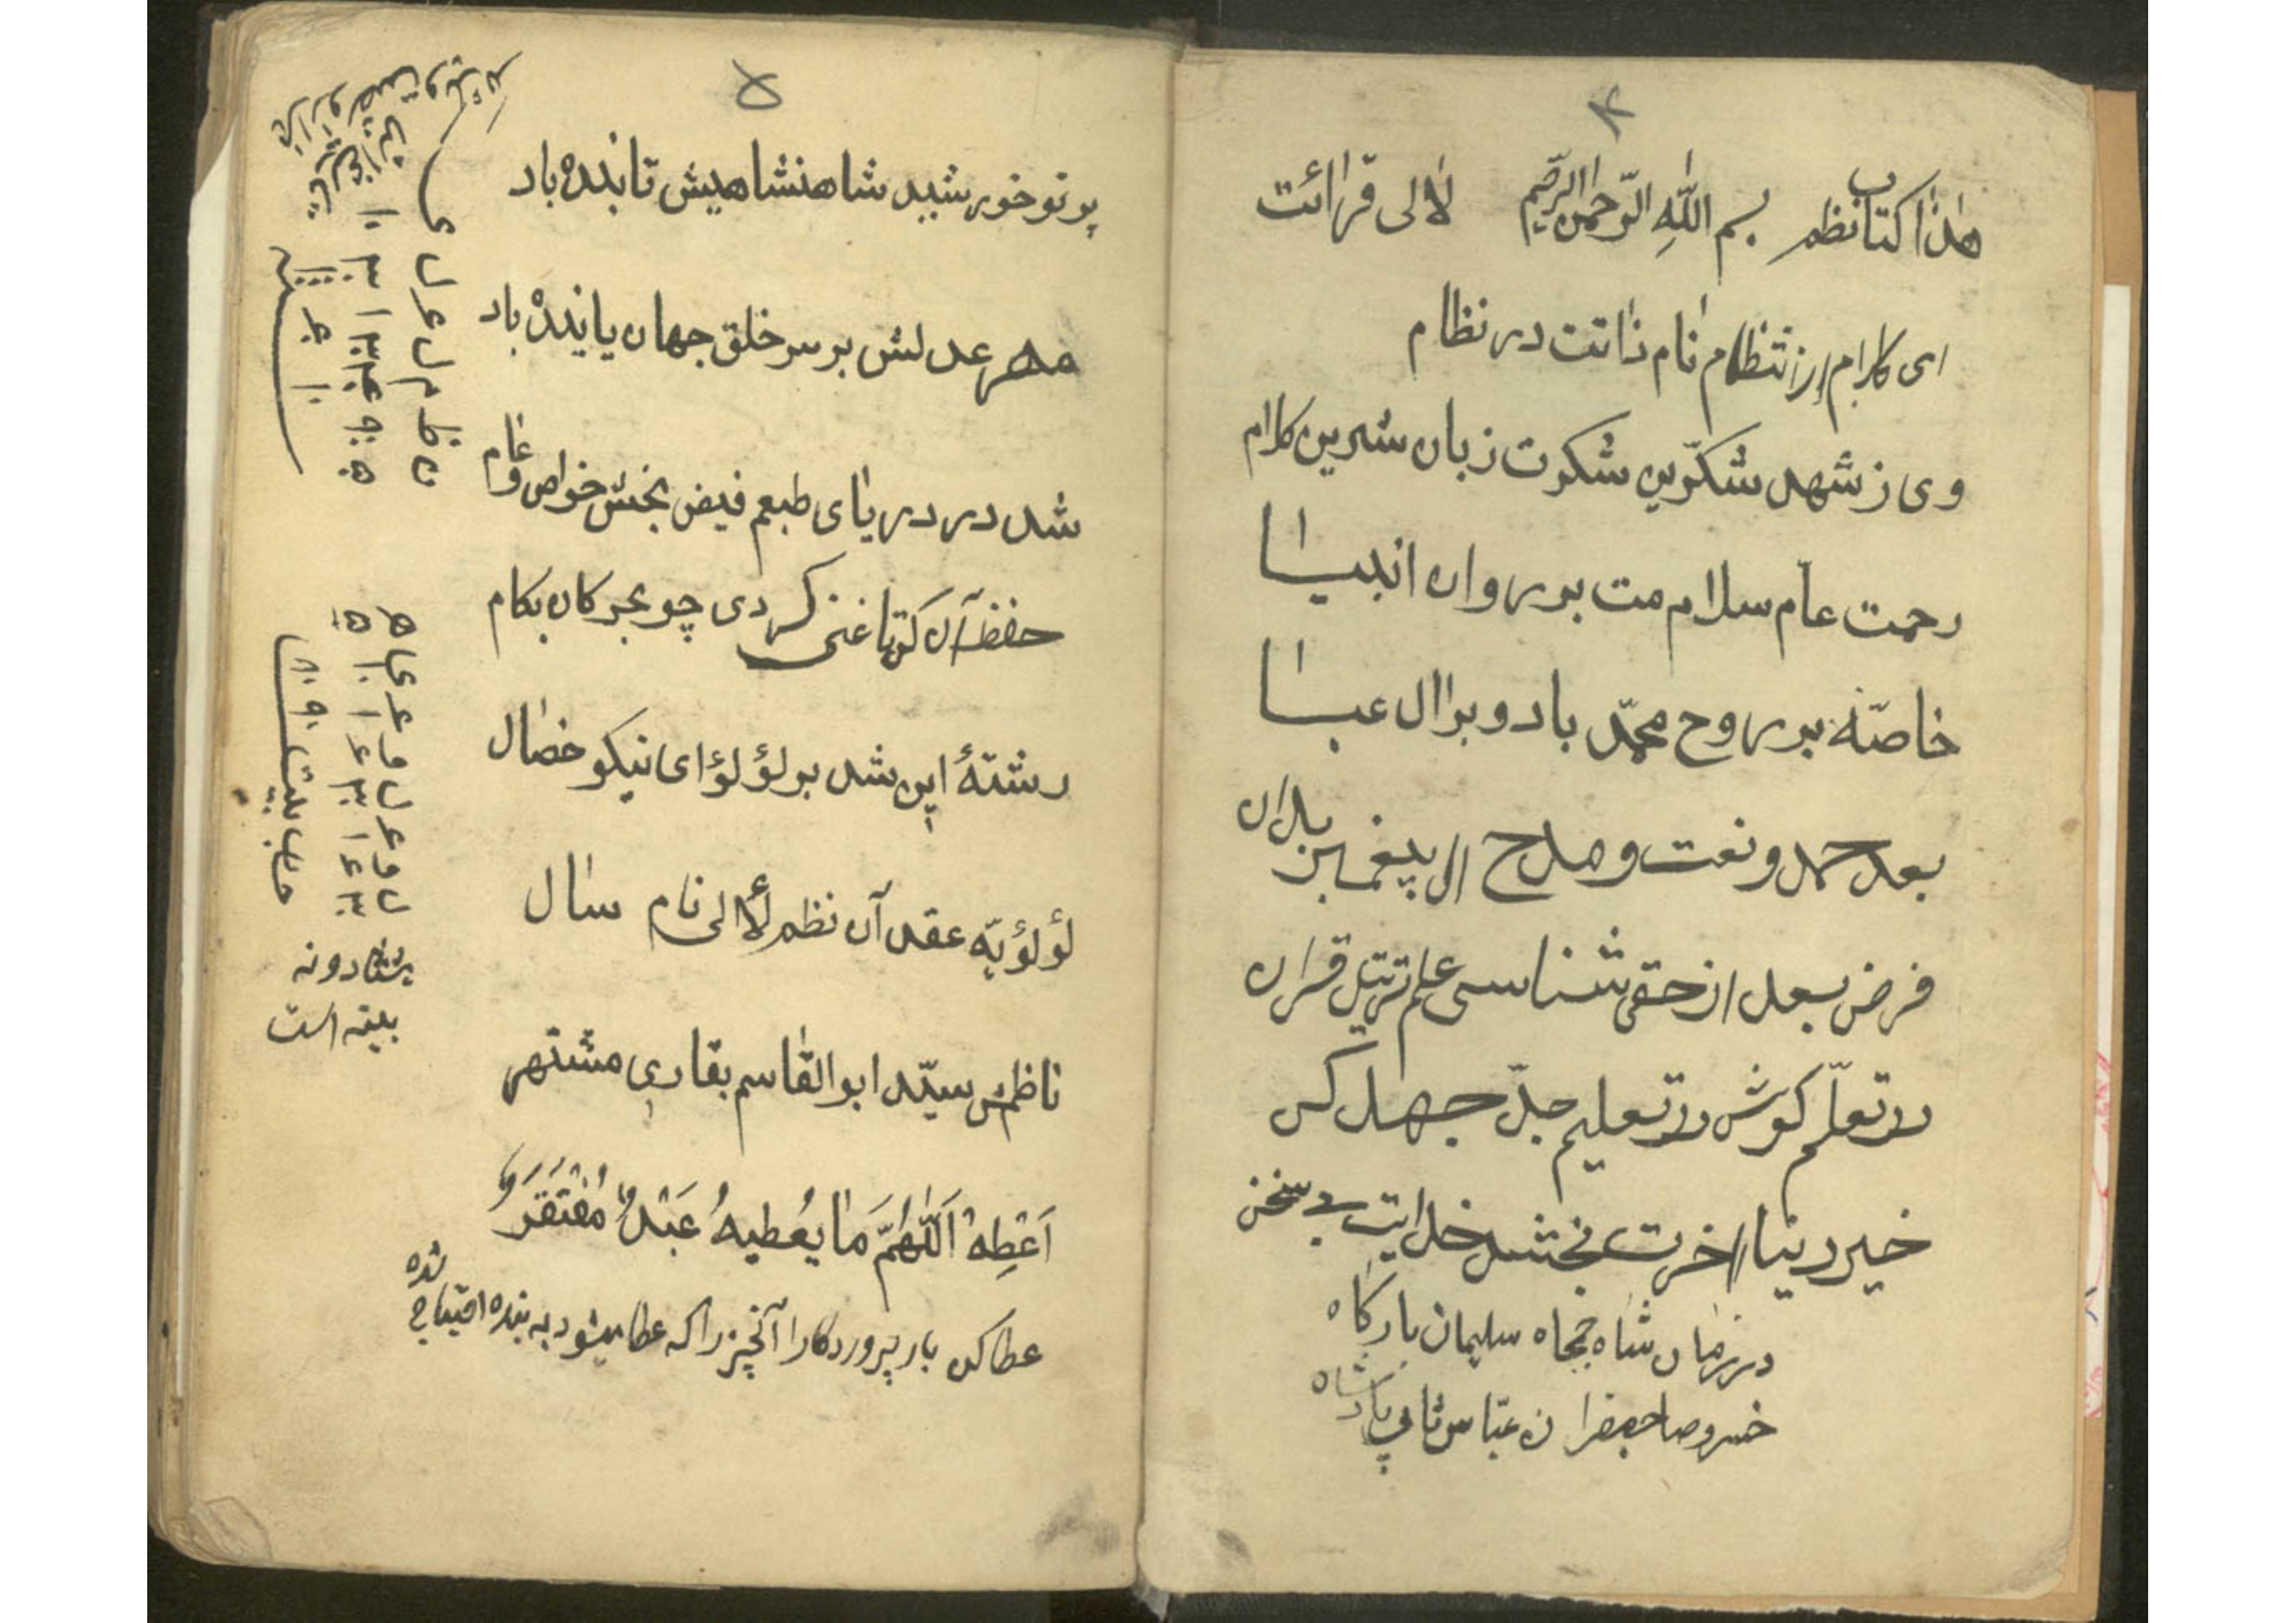 ۴
هذا کتاب نظم بسم الله الرّحمن الرّحیم لالی قرائت
ای کلام از انتظام نام ذاتت در نظام
وی ز شهد شکّرین شکرت زبان شیرین کلام
رحمت عام سلامت بر روان انبیا
خاصّه بر روح محمّد باد و بر ال عبا
بعد حمد و نعت و مدح ال پیغمبر بدان
فرض بعد از حق شناسی علم ترتیل قران
در تعلّم کوش در تعلیم جدّ جهد کن
خیر دنیا اخرت بخشد خدایت بی سخن
در زمان شاه جمجاه سلیمان بارکاه
خسرو صاحبقران عبّاس ثانی پادشاه
۵
پرتو خورشید شاهنشاهیش تابنده باد
مهر عدلش بر سر خلق جهان پاینده باد
شد در دریای طبعم فیض بخش خواص و عام
حفظ آن کن تا غنی کردی چو بحر کان بکام
رشتهٔ این شد بر لؤلؤ ای نیکو خصال
لؤلؤیّه عقد آن نظم لألی نام سال
ناظمش سیّد ابوالقاسم بقاری مشتهر
اَعْطِهْ اَللّهُمَّ مَا یُعْطیهُ عَبْدٌ مُفْتَقَر
عطا کن بار پروردکارا آنچیز را که عطا میشود به بنده احتیاج شده
ن ظ م ل ع ل ی
هشتاد و نه
بیته است